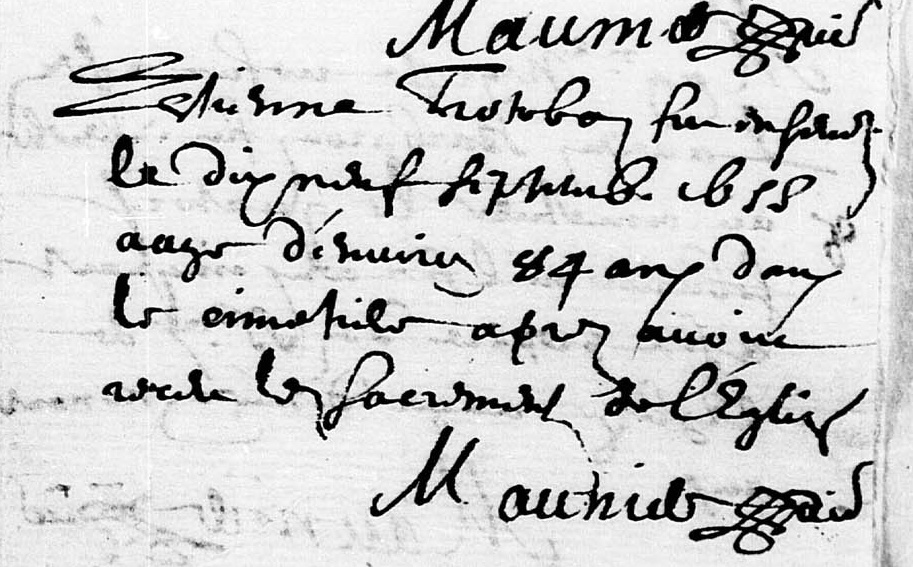 Maunier
Estienne Trotobas fut ensevely
le dix neuf septemb. 1688
aage d'environ 84 ans dans
le cimetiere apres avoir
receu les sacremens de l'Eglise
Maunier